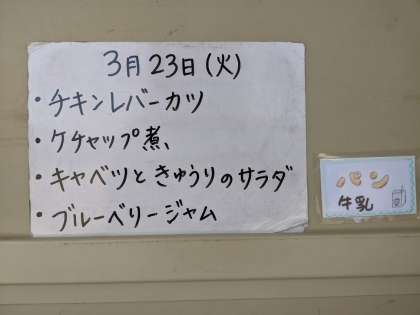 3月23日(火)
・チキンレバーカツ
・ケチャップ煮
・キャベツときゅうりのサラダ
・ブルーベリージャム
パン
牛乳